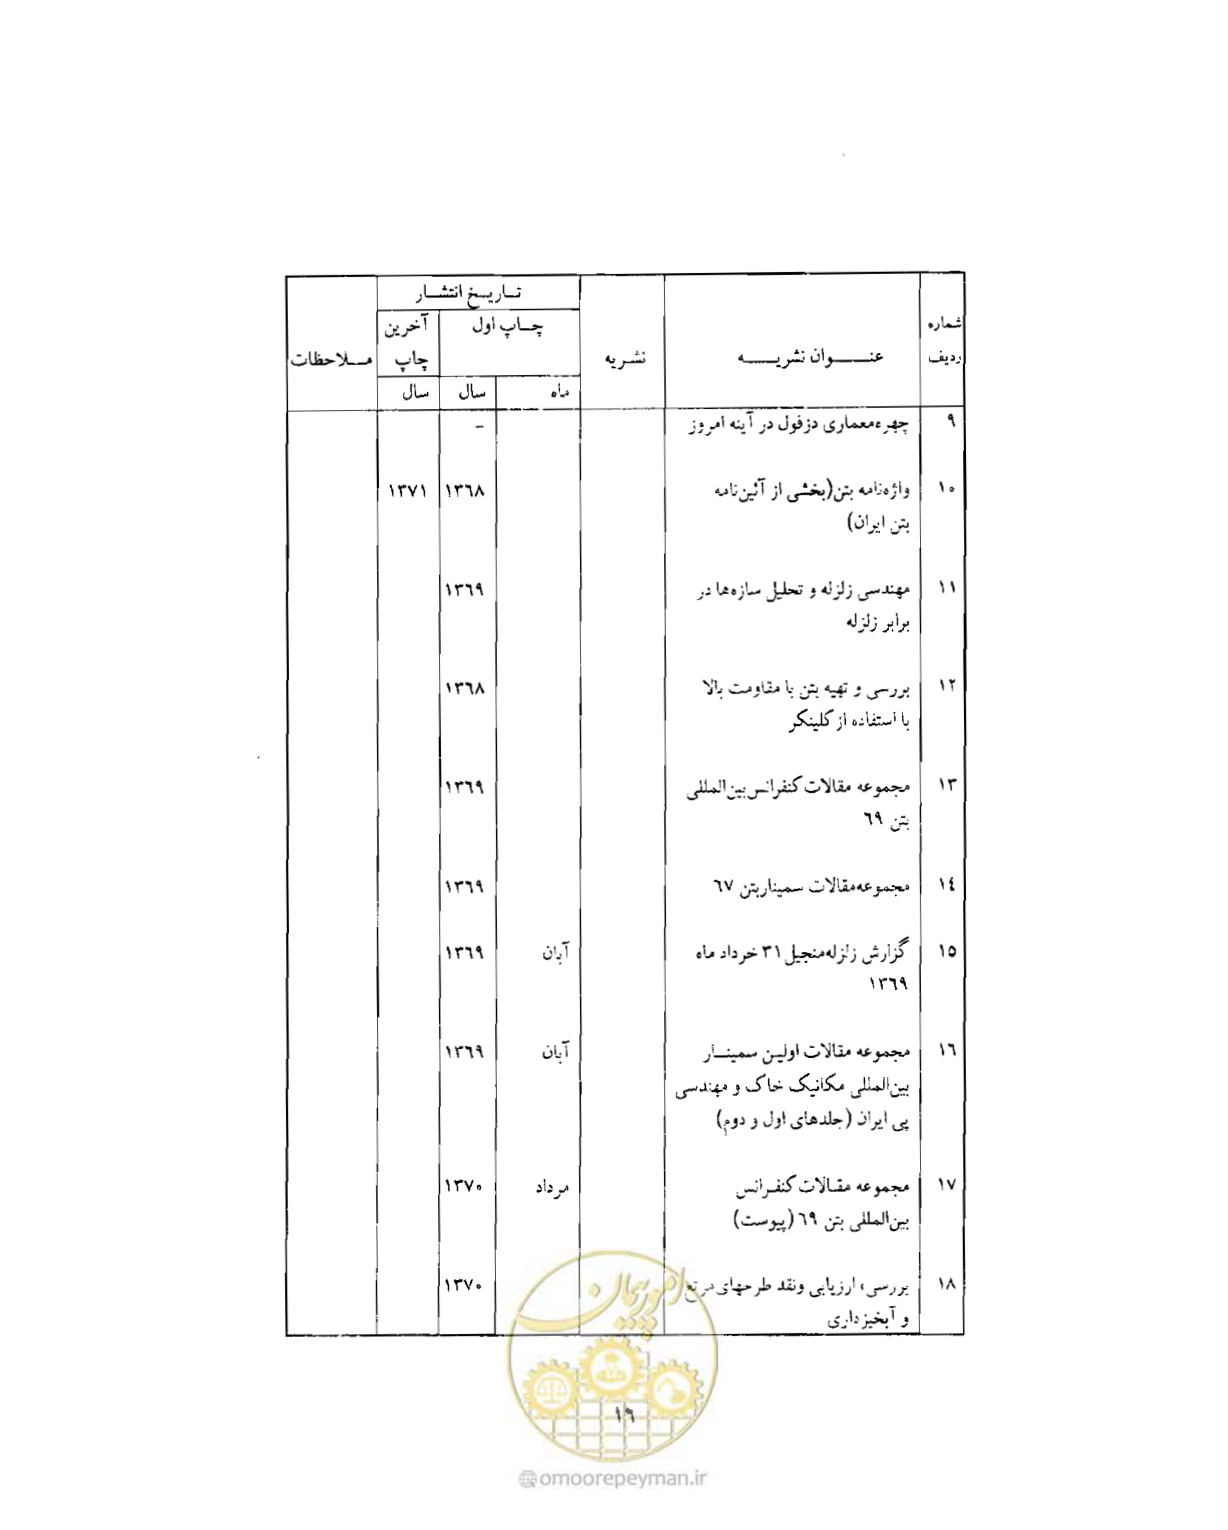 شماره ردیف	عنوان نشریه	نشریه	تاریخ انتشار	ملاحظات
چاپ اول	آخرین چاپ
ماه	سال	سال
۹	چهره‌معماری دزفول در آینه امروز	–
۱۰	واژه‌نامه بتن(بخشی از آئین‌نامه	۱۳٦۸	۱۳۷۱
بتن ایران)
۱۱	مهندسی زلزله و تحلیل سازه‌ها در	۱۳٦۹
برابر زلزله
۱۲	بررسی و تهیه بتن با مقاومت بالا	۱۳٦۸
با استفاده از کلینکر
۱۳	مجموعه مقالات کنفرانس بین‌المللی	۱۳٦۹
بتن ٦۹
۱٤	مجموعه‌مقالات سمیناربتن ٦۷	۱۳٦۹
۱۵	گزارش زلزله‌منجیل ۳۱ خرداد ماه	آبان	۱۳٦۹
۱۳٦۹
۱٦	مجموعه مقالات اولین سمینار	آبان	۱۳٦۹
بین‌المللی مکانیک خاک و مهندسی
پی ایران (جلدهای اول و دوم)
۱۷	مجموعه مقالات کنفرانس	مرداد	۱۳۷۰
بین‌المللی بتن ٦۹ (پیوست)
۱۸	بررسی، ارزیابی ونقد طرحهای مرتع	۱۳۷۰
و آبخیزداری
امور پیمان
۱٦
omoorepeyman.ir